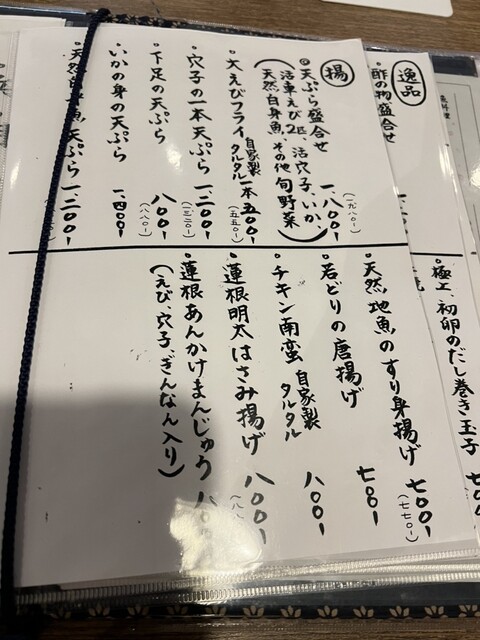 逸品
酢の物盛合せ
極上、初卵のだし巻き玉子
揚
◎天ぷら盛合せ
(活車えび2匹、活穴子、いか、
天然白身魚、その他旬野菜)
一、八〇〇
(一九八〇)
・大えびフライ 自家製タルタル 一本 五〇〇
(五五〇)
・穴子の一本天ぷら 一、二〇〇
(一三二〇)
・下足の天ぷら 八〇〇
(八八〇)
・いかの身の天ぷら 一、四〇〇
天ぷら 一、二〇〇
・天然地魚のすり身揚げ 七〇〇
(七七〇)
・若どりの唐揚げ 七〇〇
・チキン南蛮 自家製タルタル 八〇〇
・蓮根明太はさみ揚げ 八〇〇
・蓮根あんかけまんじゅう
(えび、穴子、ぎんなん入り)